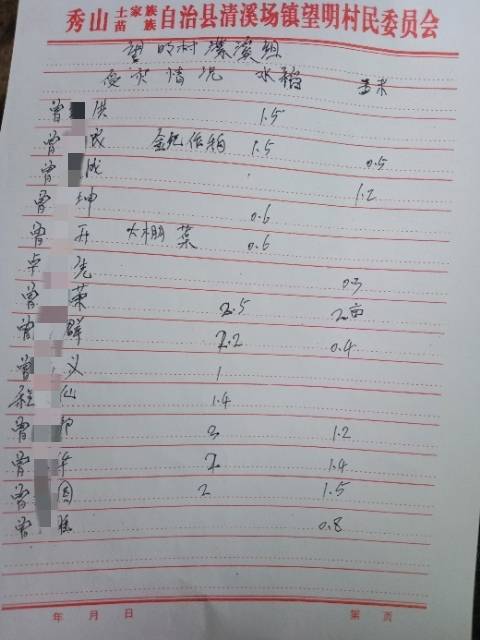 秀山土家族苗族自治县清溪场镇望明村民委员会
望明村溪组
受灾情况 水稻 玉米
曾 洪 1.5
曾 成 1.5
曾 成 0.5
曾 坤 1.2
0.6
曾 开 大棚菜 0.6
卓 先 0.3
曾 荣 2.5 2亩
曾 群 2.2 0.4
曾 义 1
程 仙 1.4
曾 2 1.2
曾 华 2 1.4
曾 国 2 1.5
曾 0.8
年 月 日 第 页